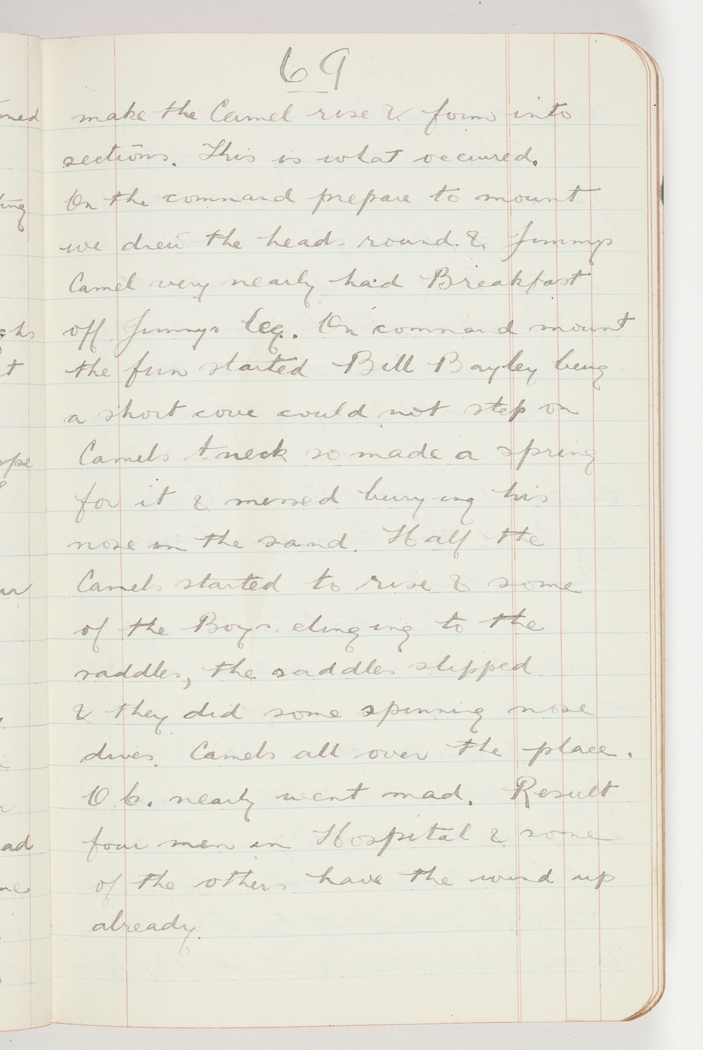 69
make the Camel rise & form into
sections. This is what occured.
On the command prepare to mount
we drew the heads round. & Jimmys
Camel very nearly had Breakfast
off Jimmys leg. On command mount
the fun started Bill Bayley being
a short cove could not step on
Camels neck so made a spring
for it & missed burying his
nose in the sand. Half the
Camels started to rise & some
of the Boys clinging to the
saddles, the saddles slipped
& they did some spinning nose
dives. Camels all over the place.
O.C. nearly went mad. Result
four men in Hospital & some
of the others have the wind up
already.